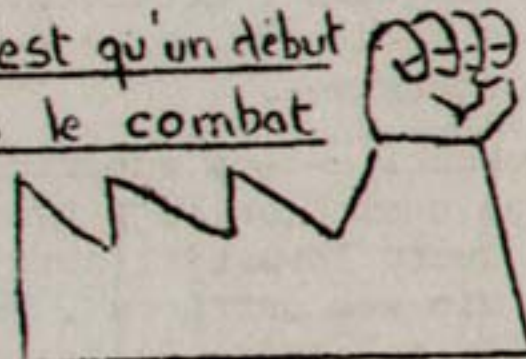 est qu'un début
le combat